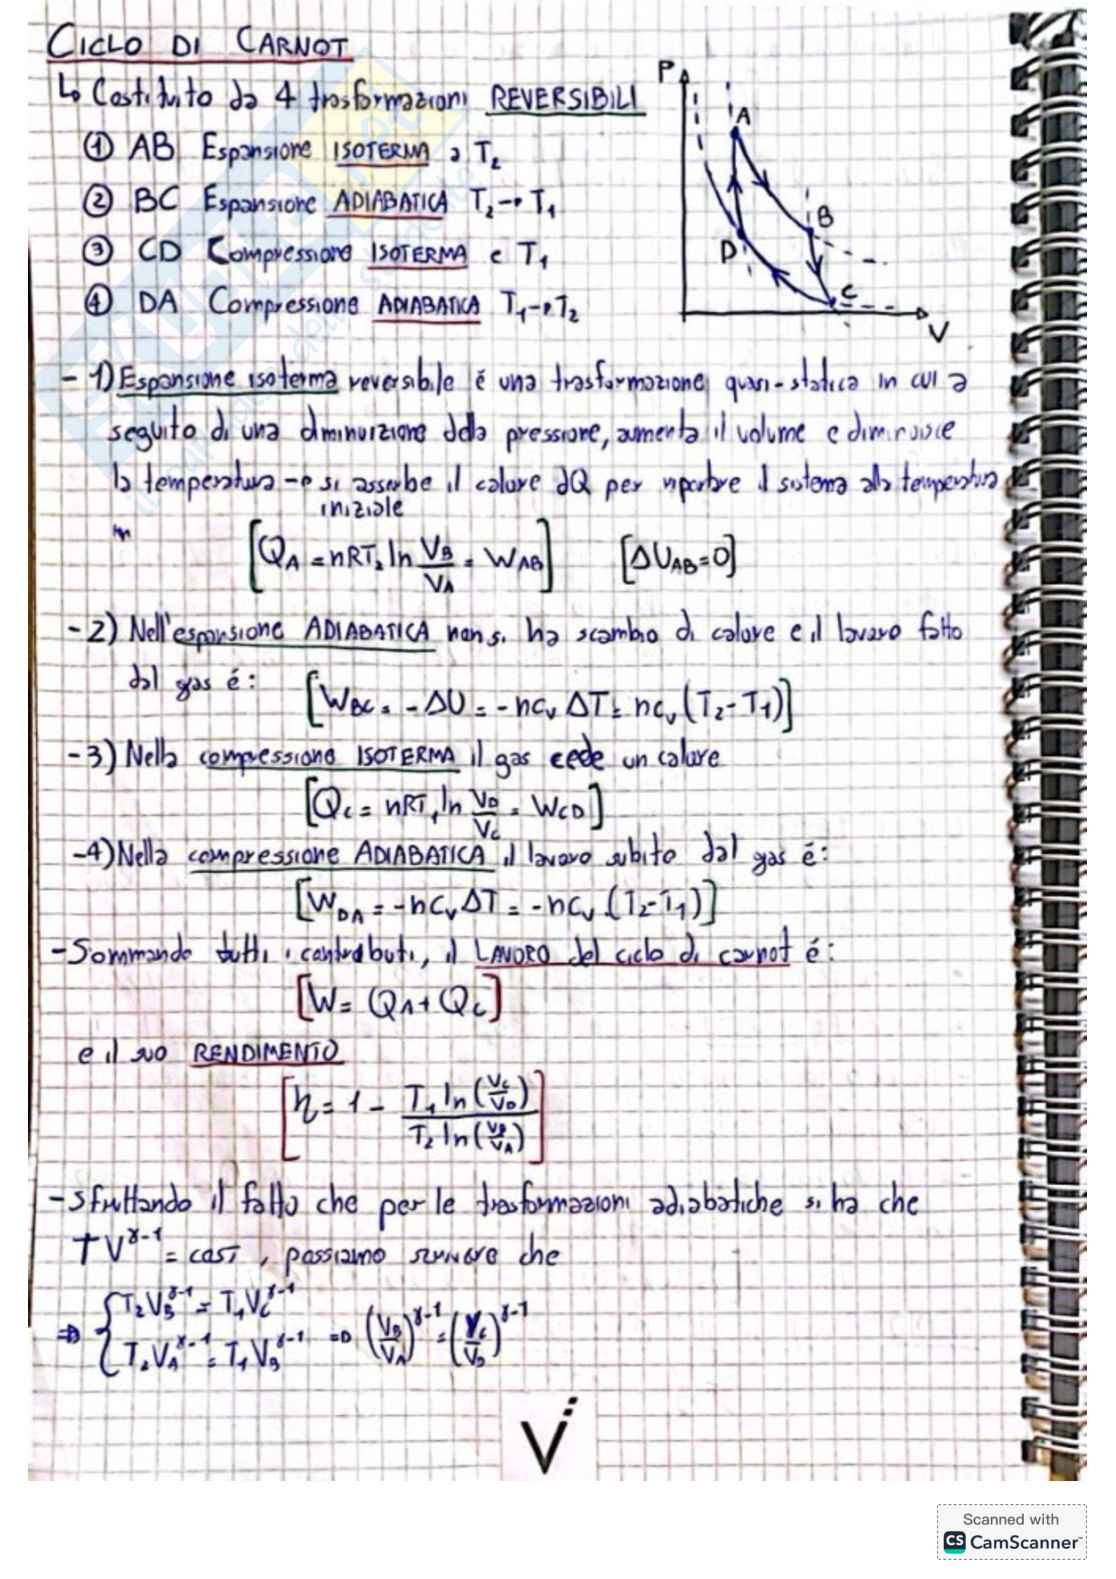 CICLO DI CARNOT
↳ Costituito da 4 trasformazioni REVERSIBILI
① AB Espansione ISOTERMA a T₂
② BC Espansione ADIABATICA T₂→T₁
③ CD Compressione ISOTERMA e T₁
④ DA Compressione ADIABATICA T₁→T₂
P
A
B
D
C
V
- 1) Espansione isoterma reversibile é una trasformazione quasi-statica in cui a
seguito di una diminuizione della pressione, aumenta il volume e diminuisce
la temperatura → si assorbe il calore dQ per riportare il sistema alla temperatura
iniziale
[Q_A = nRT₂ ln V_B/V_A = W_AB] [ΔU_AB = 0]
- 2) Nell'espansione ADIABATICA non si ha scambio di calore e il lavoro fatto
dal gas é: [W_BC = -ΔU = -nc_v ΔT = nc_v (T₂-T₁)]
- 3) Nella compressione ISOTERMA il gas cede un calore
[Q_C = nRT₁ ln V_D/V_C = W_CD]
- 4) Nella compressione ADIABATICA il lavoro subito dal gas é:
[W_DA = -nc_v ΔT = -nc_v (T₂-T₁)]
- Sommando tutti i contributi, il LAVORO del ciclo di carnot é:
[W = Q_A + Q_C]
e il suo RENDIMENTO
[η = 1 - T₁ ln(V_C/V_D) / T₂ ln(V_B/V_A)]
- Sfruttando il fatto che per le trasformazioni adiabatiche si ha che
TV^γ-1 = cost, possiamo scrivere che
⇒ { T₂V_B^γ-1 = T₁V_C^γ-1
T₂V_A^γ-1 = T₁V_B^γ-1 ⇒ (V_B/V_A)^γ-1 = (V_C/V_D)^γ-1
Scanned with
CS CamScanner